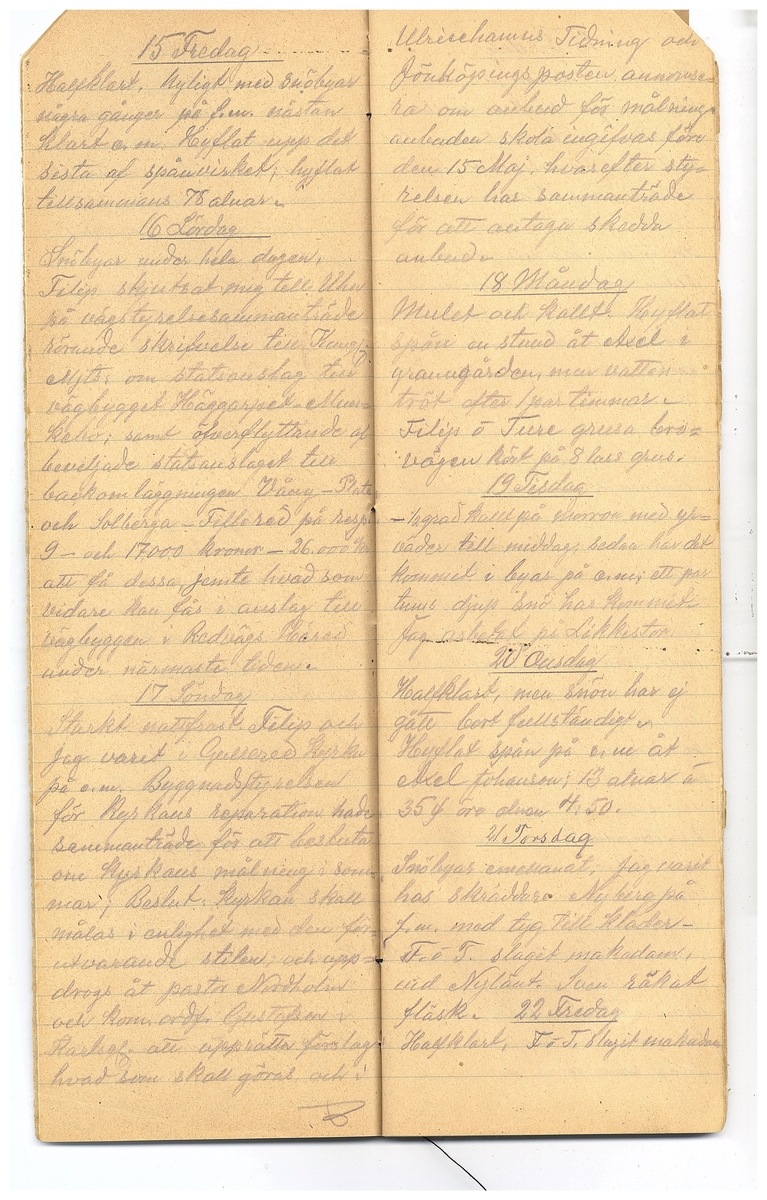 15 Fredag
Halfklart, kyligt med snöbyar
några gånger på f.m. nästan
klart e.m. Hyflat upp det
sista af spånvirket; hyflat
tillsammans 78 alnar.
16 Lördag
Snöbyar under hela dagen.
Filip skjutsat mig till Uhn
på vägstyrelsesammanträde
rörande skrifvelse till Kungl
Mjts; om statsanslag till
vägbygget Häggarpet-Mun-
kebo; samt öfverflyttande af
beviljade statsanslaget till
backomläggningen Våmy - 
och Solberga - Fellered på resp.
9- och 17000 kronor - 26.000 Kr
att få dessa, jemte hvad som
vidare kan fås i anslag till
vägbyggen i Redvägs Härad
under närmaste tiden.
17 Söndag
Starkt nattfrost. Filip och
Jag varit i Gullered Kyrka
på e.m. Byggnadsstyrelsen
för kyrkans reparation hade
sammanträde för att besluta
om kyrkans målning i som-
mar; Beslut: Kyrkan skall
målas i enlighet med den för-
utvarande stilen; och upp-
drogs åt pastor Nordholm
och kom. ordf. Gustafson i
att upprätta förslag
hvad som skall göras, och i
Ulricehamns Tidning och
Jönköpingsposten annonse-
ra om anbud för målning
anbuden skola ingifvas före
den 15 Maj, hvarefter sty-
relsen har sammanträde
för att antaga skedda
anbud.
18 Måndag
Mulet och kallt. Hyflat
spån en stund åt Axel i
granngården, men vatten
tröt efter 1 par timmar.
Filip o Ture grusa bro-
vägen kört på 8 lass grus.
19 Tisdag
- ½ grad kallt på morron med yr-
väder till middag, sedan har det
kommit i byar på e.m; ett par
tums djup snö har kommit.
Jag arbetat på Likkistor.
20 Onsdag
Halfklart, men snön har ej
gått bort fullständigt.
Hyflat spån på e.m åt
Axel Johanson; 13 alnar à
35 öre alnen 4,50.
21 Torsdag
Snöbyar emellanåt, jag varit
hos skräddare Nyberg på
f.m. med tyg till kläder -
F. o T. slaget makadam,
vid Nylänt. Sven rökat
fläsk. 22 Fredag
Halfklart, F o T. slagit makadam